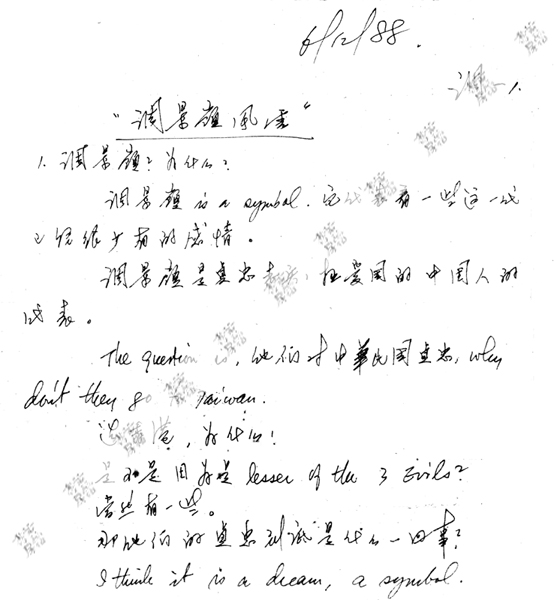 6/12/88.
1.
"调景嶺風雲"
1. 调景嶺? 为什么?
调景嶺 is a symbol. 它代表有一些这一代
已经很少有的感情。
调景嶺是真忠 爱国的中国人的
代表。
The question is, 他们对中華民國真忠, why
don't they go Taiwan.
为什么!
是不是因为是 lesser of the 3 Evils?
当然有一些。
那他们的真忠到底是什么一回事?
I think it is a dream, a symbol.